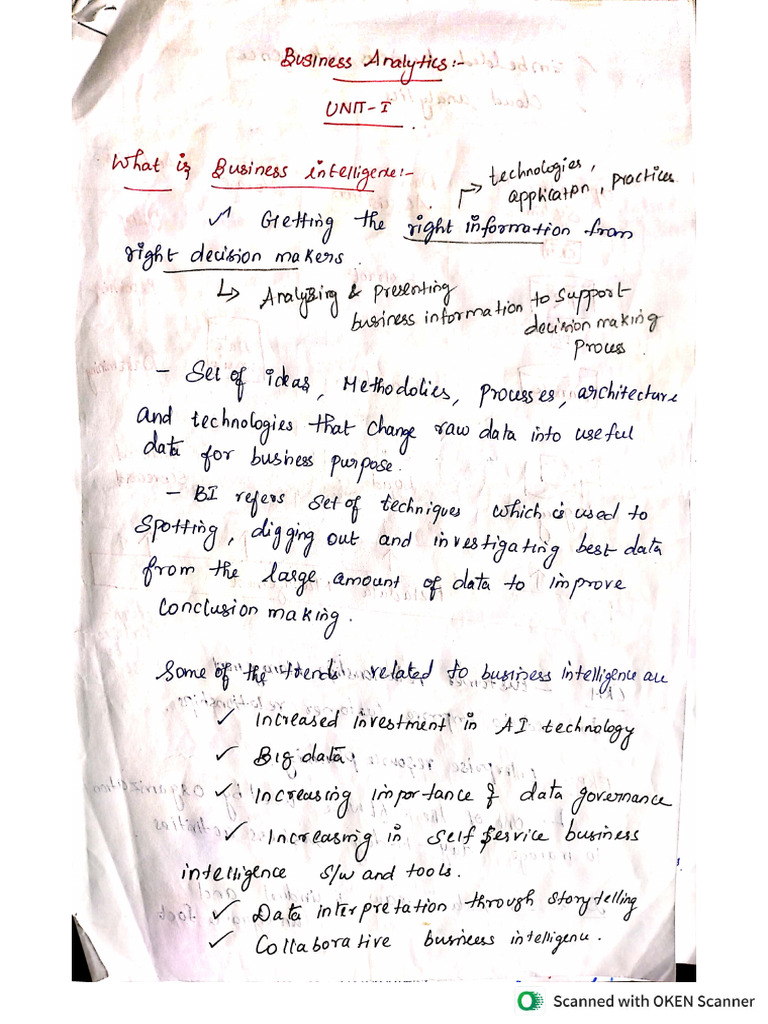 Business Analytics:-
UNIT-I
What is Business intelligence:-
technologies,
application, practices
✓ Getting the right information from
right decision makers.
↳ Analyzing & Presenting
business information to support
decision making
Process
- Set of ideas, Methodolies, Processes, architecture
and technologies that change raw data into useful
data for business purpose.
- BI refers set of techniques which is used to
Spotting, digging out and investigating best data
from the large amount of data to improve
Conclusion making.
Some of the trends related to business intelligence are
✓ Increased investment in AI technology
✓ Big data
✓ Increasing importance of data governance
✓ Increasing in Self Service business
intelligence S/w and tools.
✓ Data interpretation through storytelling
✓ Collaborative business intelligence.
Scanned with OKEN Scanner